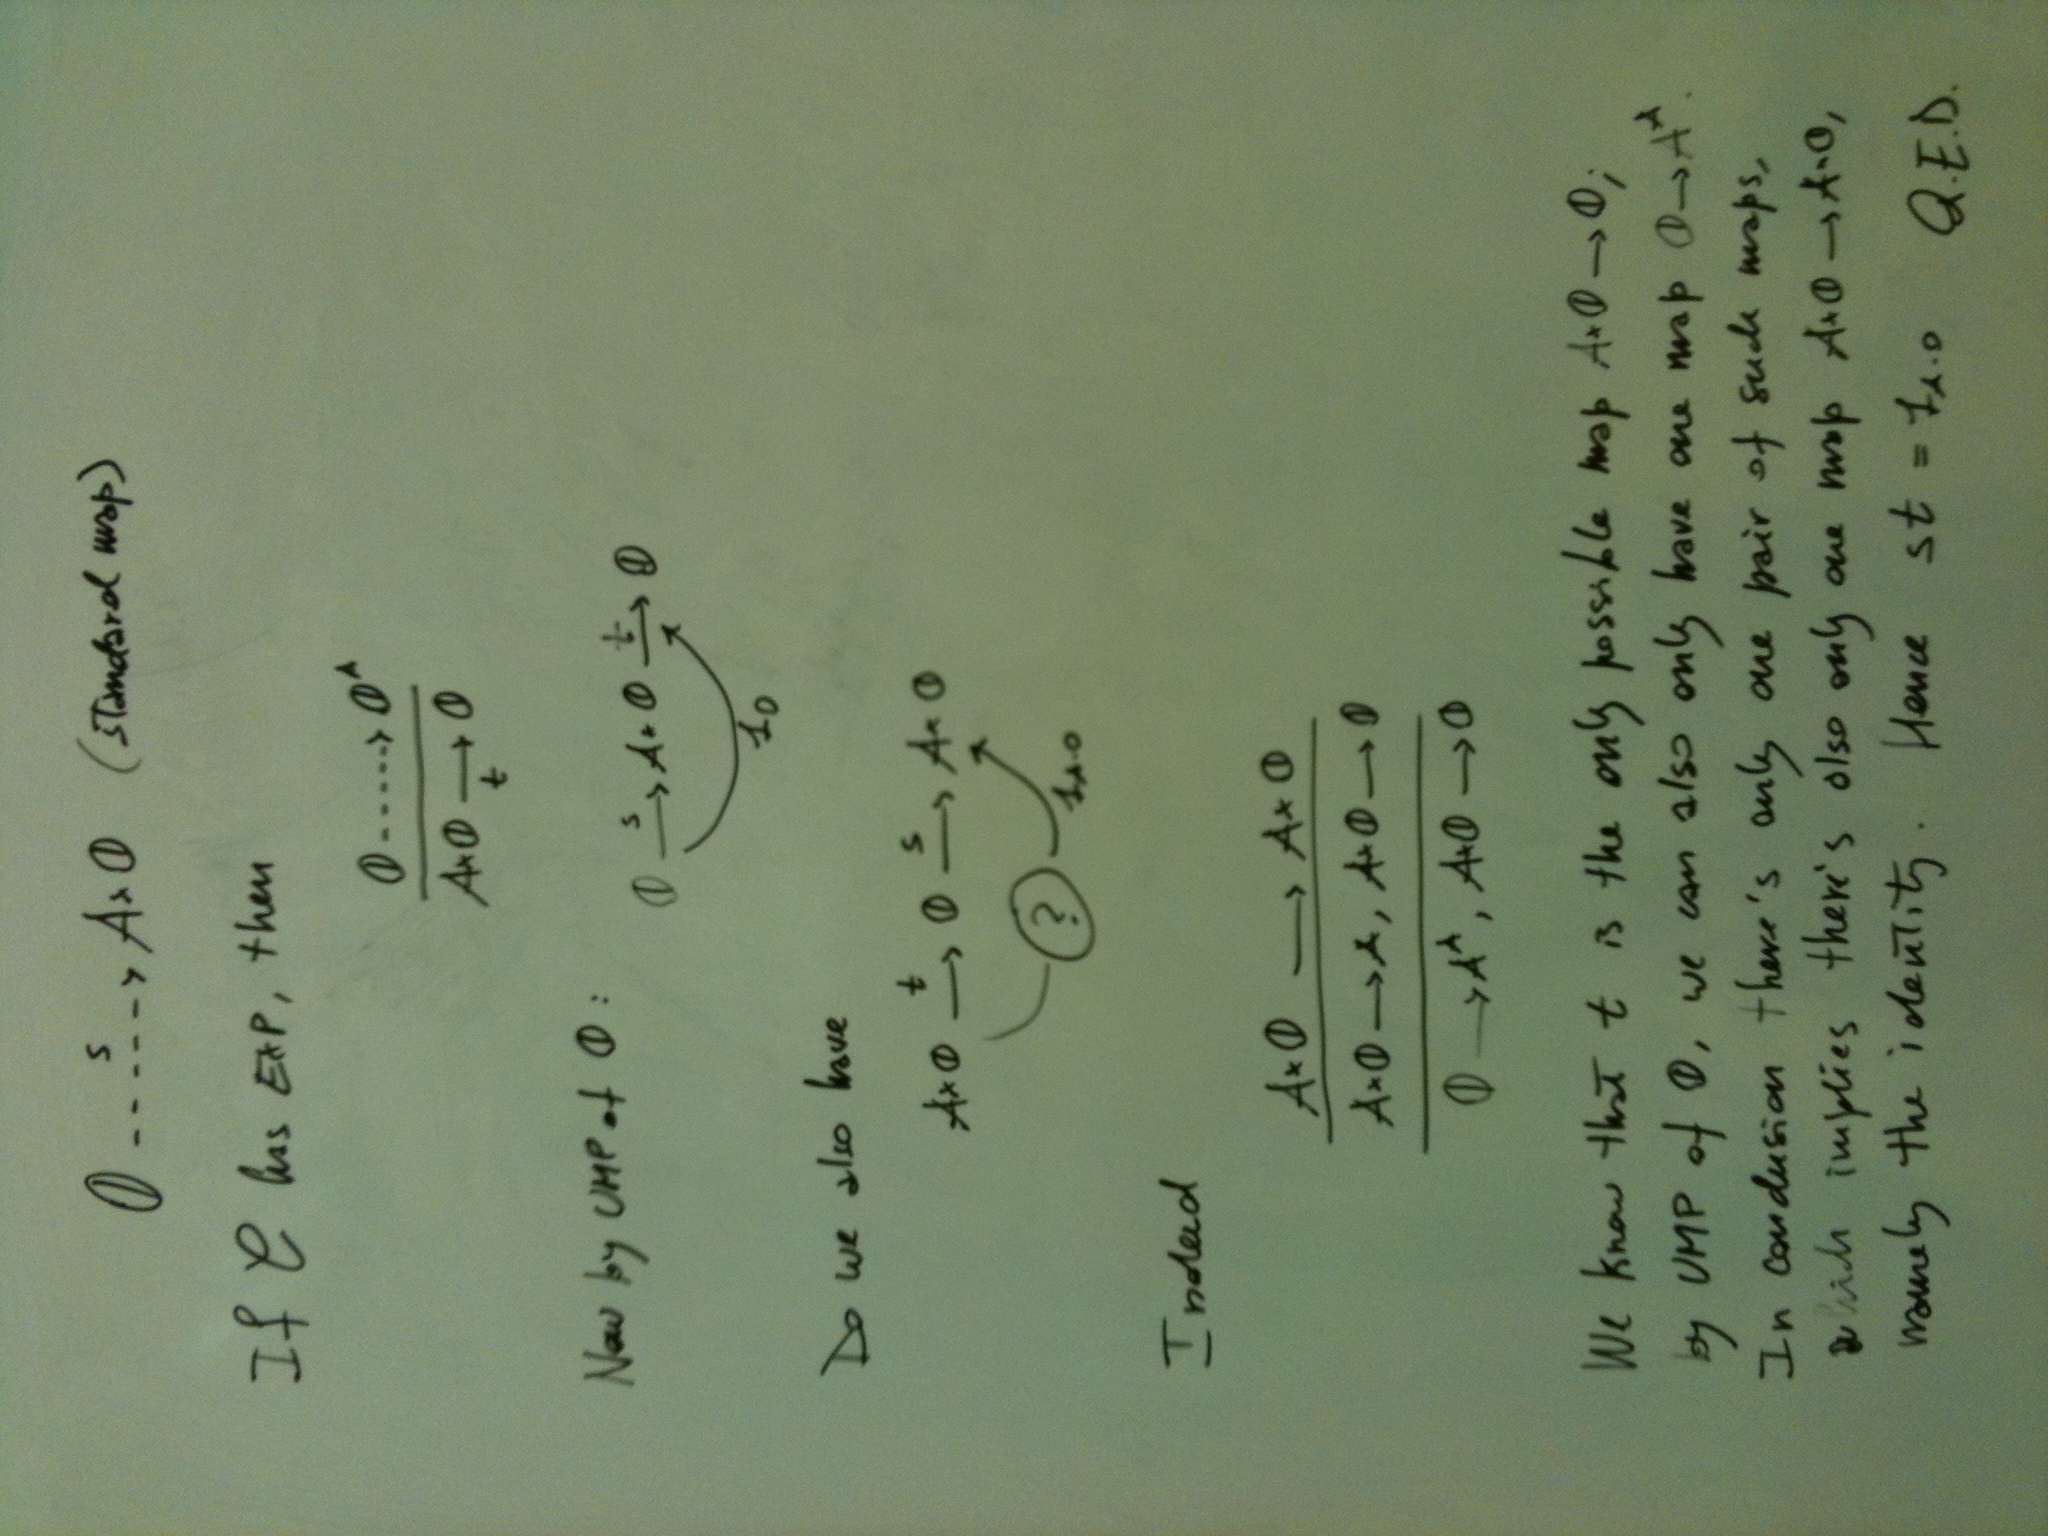 𝟘 ----s----> A×𝟘 (standard map)
If 𝒞 has EXP, then
𝟘 -----> 𝟘ᴬ
A×𝟘 → 𝟘
t
Now by UMP of 𝟘:
𝟘 —s→ A×𝟘 —t→ 𝟘
1₀
Do we also have
A×𝟘 —t→ 𝟘 —s→ A×𝟘
? 1_A×0
Indeed
A×𝟘 → A×𝟘
A×𝟘 → A, A×𝟘 → 𝟘
𝟘 → Aᴬ, A×𝟘 → 𝟘
We know that t is the only possible map A×𝟘 → 𝟘;
by UMP of 𝟘, we can also only have one map 𝟘 → Aᴬ.
In conclusion there's only one pair of such maps,
which implies there's also only one map A×𝟘 → A×𝟘,
namely the identity. Hence st = 1_A×0 Q.E.D.